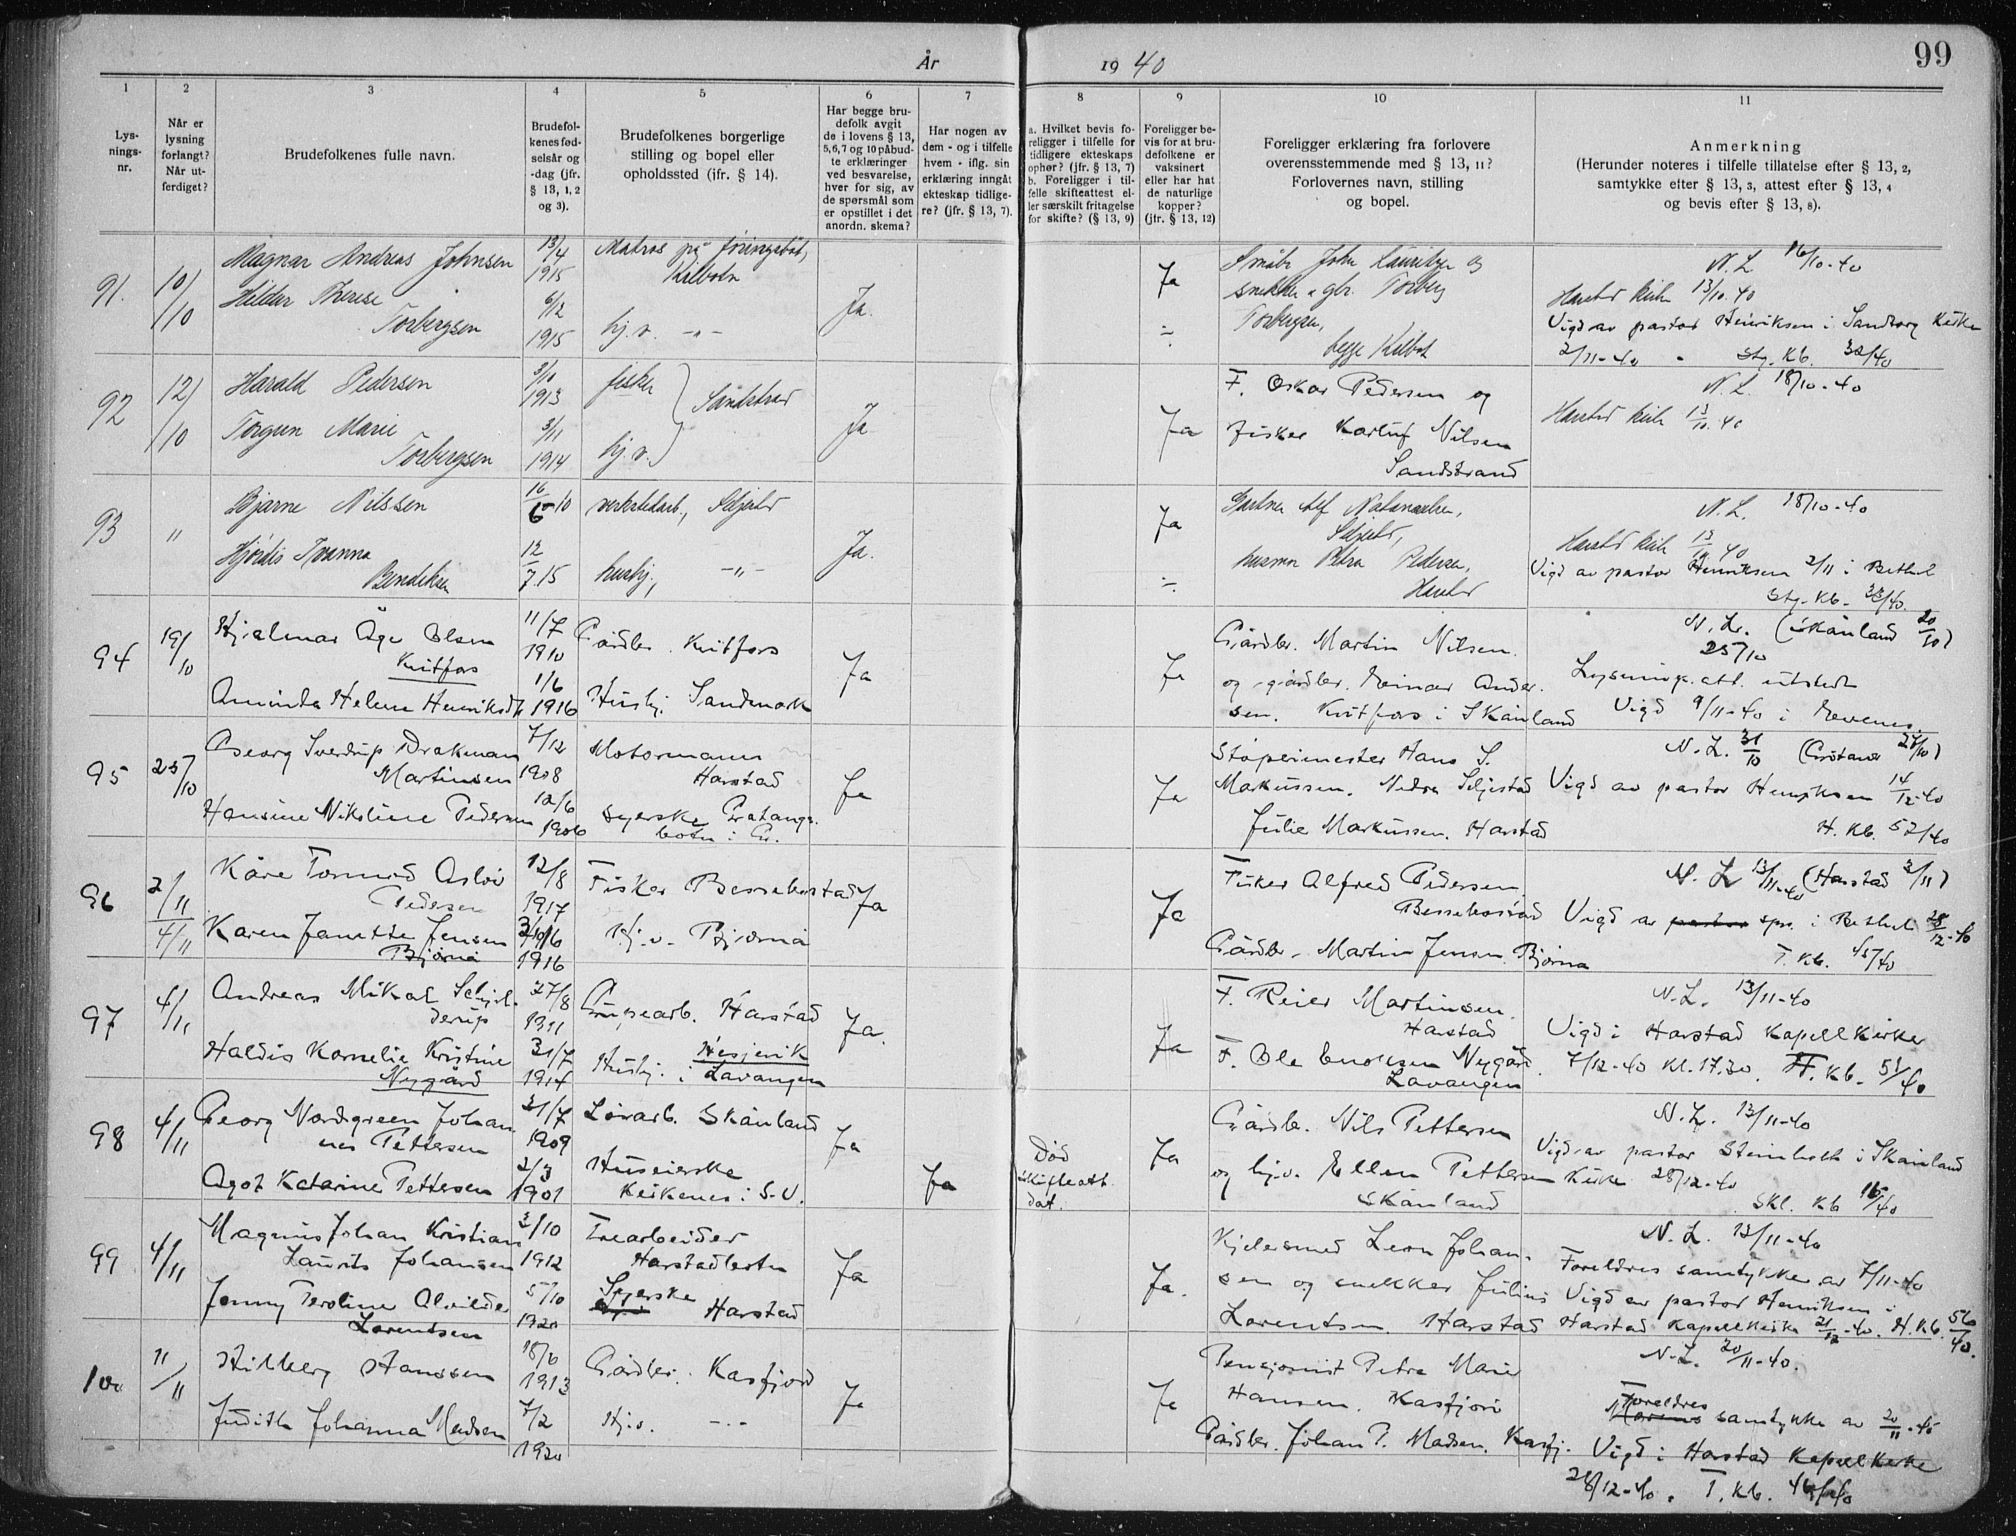 99
År 1940
1 2 3 4 5 6 7 8 9 10 11
Lys-
nings-
nr.
Når er
lysning
forlangt?
Når ut-
ferdiget?
Brudefolkenes fulle navn.
Brudefol-
kenes fød-
selsår og
-dag (jfr.
§ 13, 1, 2
og 3).
Brudefolkenes borgerlige
stilling og bopel eller
opholdssted (jfr. § 14).
Har begge bru-
defolk avgit
de i lovens § 13,
5,6,7 og 10 påbud-
te erklæringer
ved besvarelse,
hver for sig, av
de spørsmål som
er opstillet i det
anordn. skema?
Har nogen av
dem - og i tilfelle
hvem - iflg. sin
erklæring inngåt
ekteskap tidlige-
re? (jfr. § 13, 7).
a. Hvilket bevis fo-
religger i tilfelle for
tidligere ekteskaps
ophør? (jfr. § 13, 7)
b. Foreligger i til-
felle skifteattest el-
ler særskilt fritagelse
for skifte? (§ 13, 9)
Foreligger be-
vis for at bru-
defolkene er
vaksinert
eller har hat
de naturlige
kopper?
(jfr. § 13, 12)
Foreligger erklæring fra forlovere
overensstemmende med § 13, 11?
Forlovernes navn, stilling
og bopel.
Anmerkning
(Herunder noteres i tilfelle tillatelse efter § 13, 2,
samtykke efter § 13, 3, attest efter § 13, 4
og bevis efter § 13, 8).
91. 10/10
Magnar Andreas Johnsen
13/4
1915
Matros på
Kilbotn
Hildur Therese
Torbergsen
6/12
1915
hj.v. -"-
Ja.
Ja
÷
Småbr. John
snekker & gbr. Torberg
Torbergsen,
begge Kilbot
N.L. 16/10-40
Harstad kirke 13/10.40
Vigd av pastor Henriksen i Sandtorg Kirke
2/11-40 - Stg. Kb. 32/40
92 12/10
Harald Pedersen
3/10
1913
fisker
Sandstrand
Torgun Marie
Torbergsen
3/11
1914
hj.v.
Ja
Ja
F. Oskar Pedersen og
fisker Karluf Nilsen
Sandstrand
N.L. 18/10-40
Harstad kirke 13/10.40
93 "
Bjarne Nilssen
16/6-10
verkstedarb., Seljestd
Hjørdis Ivanna
Bendiksen
12/7.15
hushj., -"-
Ja.
Ja
÷
Gartner Alf Natanaelsen,
Seljestd,
husmor Petra Pedersen,
Harstd
N.L. 18/10-40
Harstd kirke 13/10 40
Vigd av pastor Henriksen 2/11 i Bethel
Stg. Kb. 33/40.
94 19/10
Hjalmar Åge Olsen
Kvitfors
11/7
1910
Gårdbr. Kvitfors
Aminda Helene Henriksdtr
1/6
1916
Hushj. Sandmark
Ja
Ja
Gårdbr. Martin Nilsen.
og gårdbr. Reinar Ander.
sen. Kvitfors i Skånland
N.L. (Skånland 20/10)
25/10
Lysnings.att. utstedt
Vigd 9/11-40 i Evenes
95 25/10
Georg Sverdrup Drakman
Martinsen
7/12
1908
Motormann
Harstad
Hansine Nikoline Pedersen
12/6
1906
syerske Gratangs.
botn i Gr.
Ja
Ja
Støperimester Hans S.
Markussen. Nedre Seljestad
Julie Markussen. Harstad
N.L. 31/10 (Gratangen 27/10)
Vigd av pastor Henriksen 14/12-40
H. Kb. 52/40
96 2/11
4/11
Kåre Tormod Asloi
Pedersen
12/8
1917
Fisker Bessebostad
Karen Janette Jensen
Bjørnå
1916
Hj.v. Bjørnå
Ja
Ja
Fisker Alfred Pedersen
Bessebostad
Gårdbr. Martin Jensen. Bjørnå
N.L. 13/11-40 (Harstad 3/11)
Vigd av spr. i Bethel 28/12-40
T. Kb. 45/40
97 4/11
Andreas Mikal Schjel.
derup
27/8
1911
Grupearb. Harstad
Haldis Kornelie Kristine
Nygård
31/7
1914
Hushj. Hesjevik
i Lavangen
Ja.
Ja
F. Reier Martinsen.
Harstad
F. Ole Enoksen Nygård
Lavangen
N.L. 13/11-40
Vigd i Harstad Kapellkirke
7/12-40 Kl. 17,30. H. Kb. 51/40
98 4/11
Georg Nordgreen Johan
nes Pettersen
31/7
1909
Løsarb. Skånland
Agot Katarine Pettersen
2/3
1901
Huseierske
Kirkenes i S-V.
Ja
Ja
Død
skifteatt.
dat.
Ja
Gårdbr. Nils Pettersen
og hj.v. Ellen Pettersen
Skånland
N.L. 13/11-40
Vigd av pastor Steinholt i Skånland
Kirke 28/12-40
Skl. Kb 16/40
99 4/11
Magnus Johan Kristian
Laurits Johansen
3/10
1912
Trearbeider
Harstadbotn
Jenny Peroline Alvilde
Lorentsen
5/10
1920
Syerske Harstad
Ja
Ja.
Kjelesmed Leon Johan.
sen og snekker Julius
Lorentsen. Harstad
N.L. 13/11-40
Foreldres samtykke av 7/11-40
Vigd av pastor Henriksen i
Harstad Kapellkirke 21/12-40. H. Kb. 56/40.
100 11/11
Hilberg Hanssen
18/6
1913
Gårdbr. Kasfjord
Judith Johanna Madsen
7/2
1920
Hj.v. -"-
Ja
Ja
Pensjonist Petra Marie
Hansen. Kasfjord
Gårdbr. Johan P. Madsen. Kasfj.
N.L. 20/11-40.
Foreldres
samtykke av 20/11-40
Vigd i Harstad Kapellkirke
28/12-40. T. Kb. 46/40